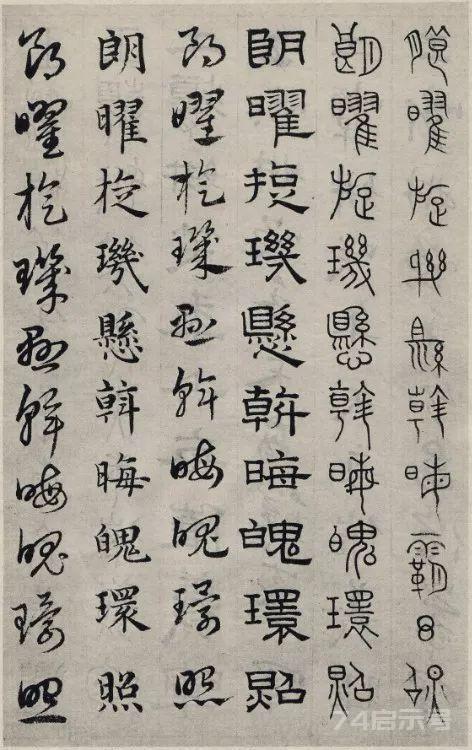 朗曜旋璣懸斡晦魄環照
朗曜旋璣懸斡晦魄環照
朗曜旋璣懸斡晦魄環照
朗曜旋璣懸斡晦魄環照
朗曜旋璣懸斡晦魄環照
朗曜旋璣懸斡晦魄環照
74启示号